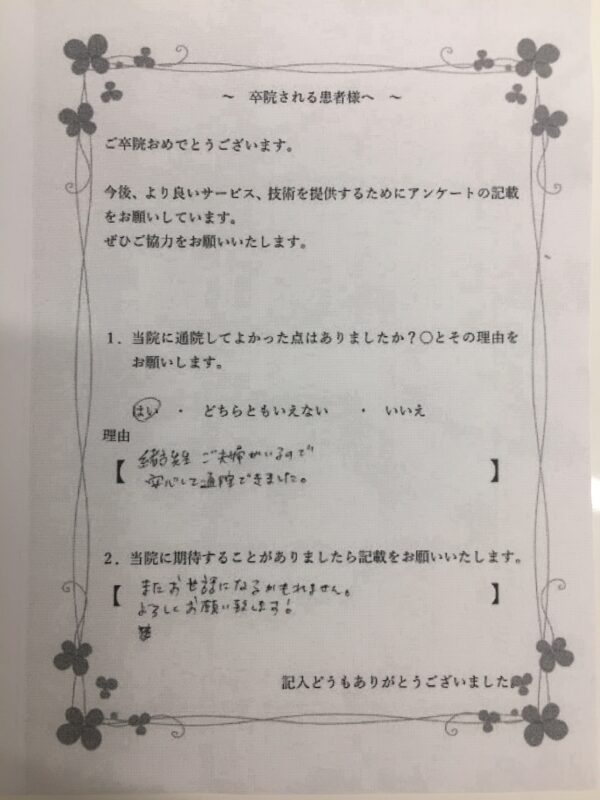 ～　卒院される患者様へ　～
ご卒院おめでとうございます。
今後、より良いサービス、技術を提供するためにアンケートの記載
をお願いしています。
ぜひご協力をお願いいたします。
1．当院に通院してよかった点はありましたか？〇とその理由を
お願いします。
はい　・　どちらともいえない　・　いいえ
理由
【 緒方先生 ご夫婦がいるので 】
安心して通院できました。
2．当院に期待することがありましたら記載をお願いいたします。
【 またお世話になるかもれません。 】
よろしくお願い致します！
記入どうもありがとうございました。